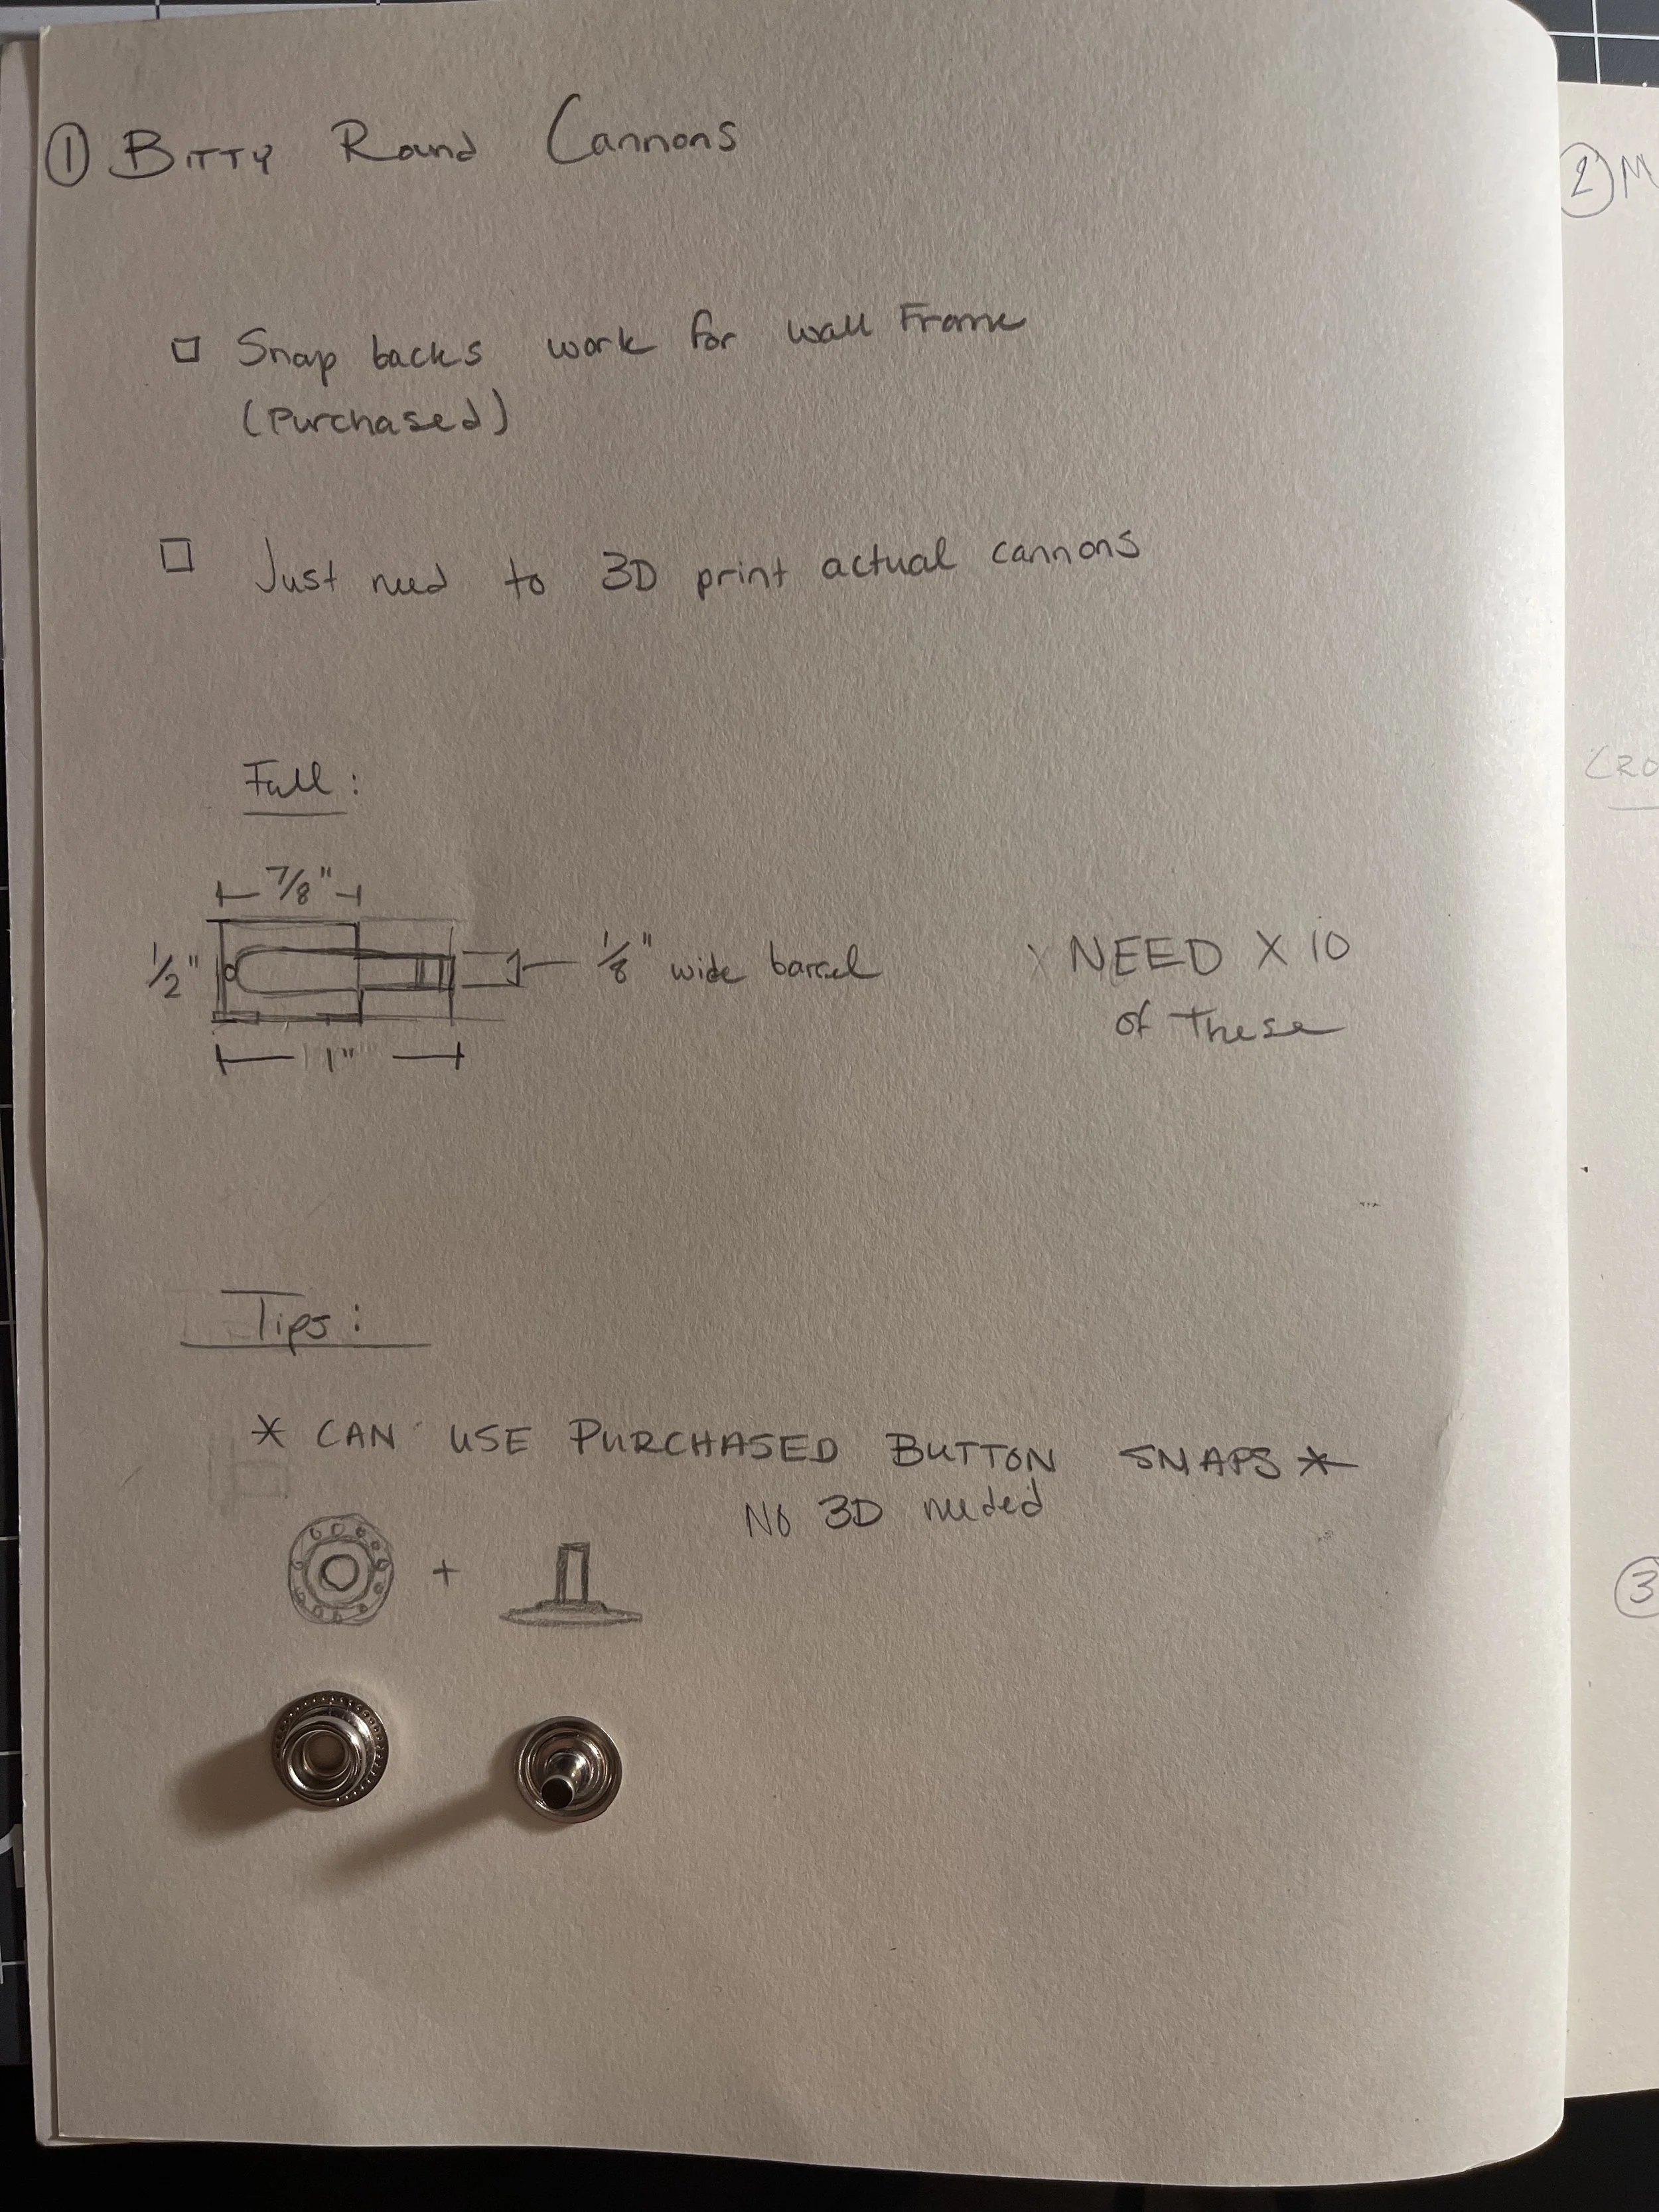 ① BITTY Round Cannons
② M
□ Snap backs work for wall Frame
(Purchased)
□ Just need to 3D print actual cannons
CRO
Full:
7/8"
1/2"
1/8" wide barrel
1"
X NEED X 10
of These
Tips:
* CAN USE PURCHASED BUTTON SNAPS *
No 3D needed
+
③